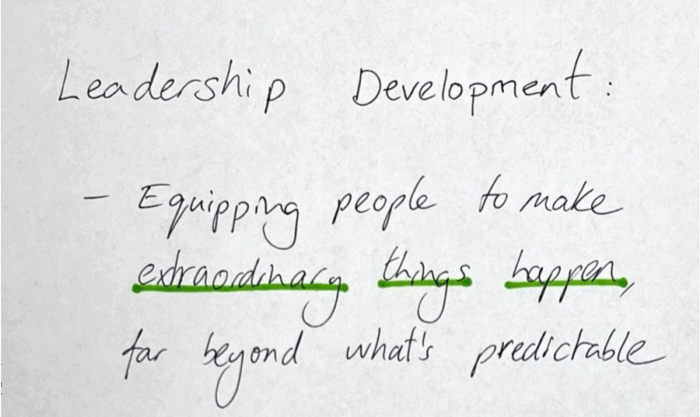 Leadership Development:
- Equipping people to make
extraordinary things happen,
far beyond what's predictable